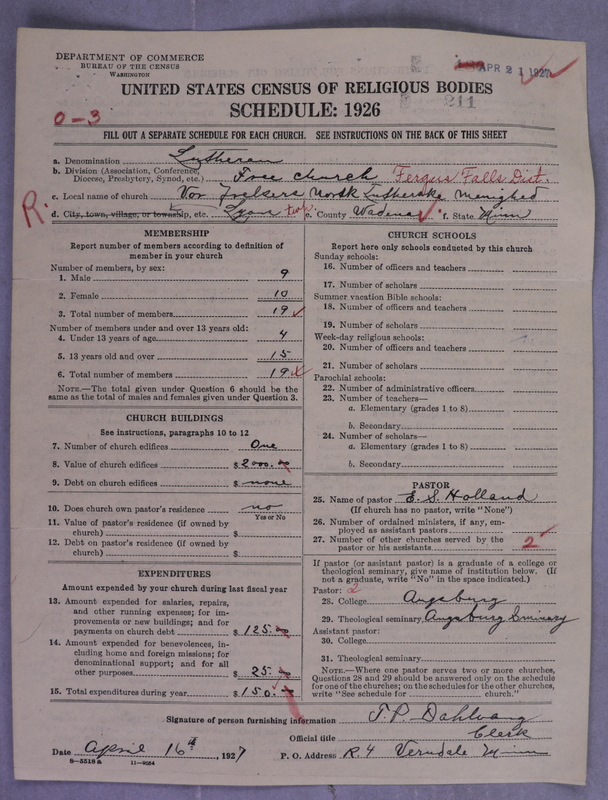 DEPARTMENT OF COMMERCE
BUREAU OF THE CENSUS
WASHINGTON
APR 21 1927
211
UNITED STATES CENSUS OF RELIGIOUS BODIES
SCHEDULE: 1926
0-3
FILL OUT A SEPARATE SCHEDULE FOR EACH CHURCH. SEE INSTRUCTIONS ON THE BACK OF THIS SHEET
a. Denomination Lutheran
b. Division (Association, Conference, Diocese, Presbytery, Synod, etc.) Free church Fergus Falls Dist.
c. Local name of church Vor Frelsers Norsk Lutherske menighed
R. d. City, town, village, or township, etc. Lyons twp. e. County Wadena f. State Minn
MEMBERSHIP
Report number of members according to definition of
member in your church
Number of members, by sex:
1. Male 9
2. Female 10
3. Total number of members 19
Number of members under and over 13 years old:
4. Under 13 years of age 4
5. 13 years old and over 15
6. Total number of members 19
NOTE.—The total given under Question 6 should be
same as the total of males and females given under Question 3.
CHURCH BUILDINGS
See instructions, paragraphs 10 to 12
7. Number of church edifices One
8. Value of church edifices $ 2000.
9. Debt on church edifices $ none
10. Does church own pastor's residence no
Yes or No
11. Value of pastor's residence (if owned by
church) $
12. Debt on pastor's residence (if owned by
church) $
EXPENDITURES
Amount expended by your church during last fiscal year
13. Amount expended for salaries, repairs,
and other running expenses; for im-
provements or new buildings; and for
payments on church debt $ 125.
14. Amount expended for benevolences, in-
cluding home and foreign missions; for
denominational support; and for all
other purposes $ 25.
15. Total expenditures during year $ 150.
CHURCH SCHOOLS
Report here only schools conducted by this church
Sunday schools:
16. Number of officers and teachers
17. Number of scholars
Summer vacation Bible schools:
18. Number of officers and teachers
19. Number of scholars
Week-day religious schools:
20. Number of officers and teachers
21. Number of scholars
Parochial schools:
22. Number of administrative officers
23. Number of teachers—
a. Elementary (grades 1 to 8)
b. Secondary
24. Number of scholars—
a. Elementary (grades 1 to 8)
b. Secondary
PASTOR
25. Name of pastor E. S. Holland
(If church has no pastor, write "None")
26. Number of ordained ministers, if any, em-
ployed as assistant pastors
27. Number of other churches served by the
pastor or his assistants 2
If pastor (or assistant pastor) is a graduate of a college or
theological seminary, give name of institution below. (If
not a graduate, write "No" in the space indicated.)
Pastor: 2
28. College Augsburg
29. Theological seminary Augsburg Siminary
Assistant pastor:
30. College
31. Theological seminary
NOTE.—Where one pastor serves two or more churches,
Questions 28 and 29 should be answered only on the schedule
for one of the churches; on the schedules for the other churches,
write "See schedule for church."
Signature of person furnishing information T. P. Dahlvang
Official title Clerk
Date April 16th, 1927 P. O. Address R. 4 Verndale Minn
8—5518a 11—9064